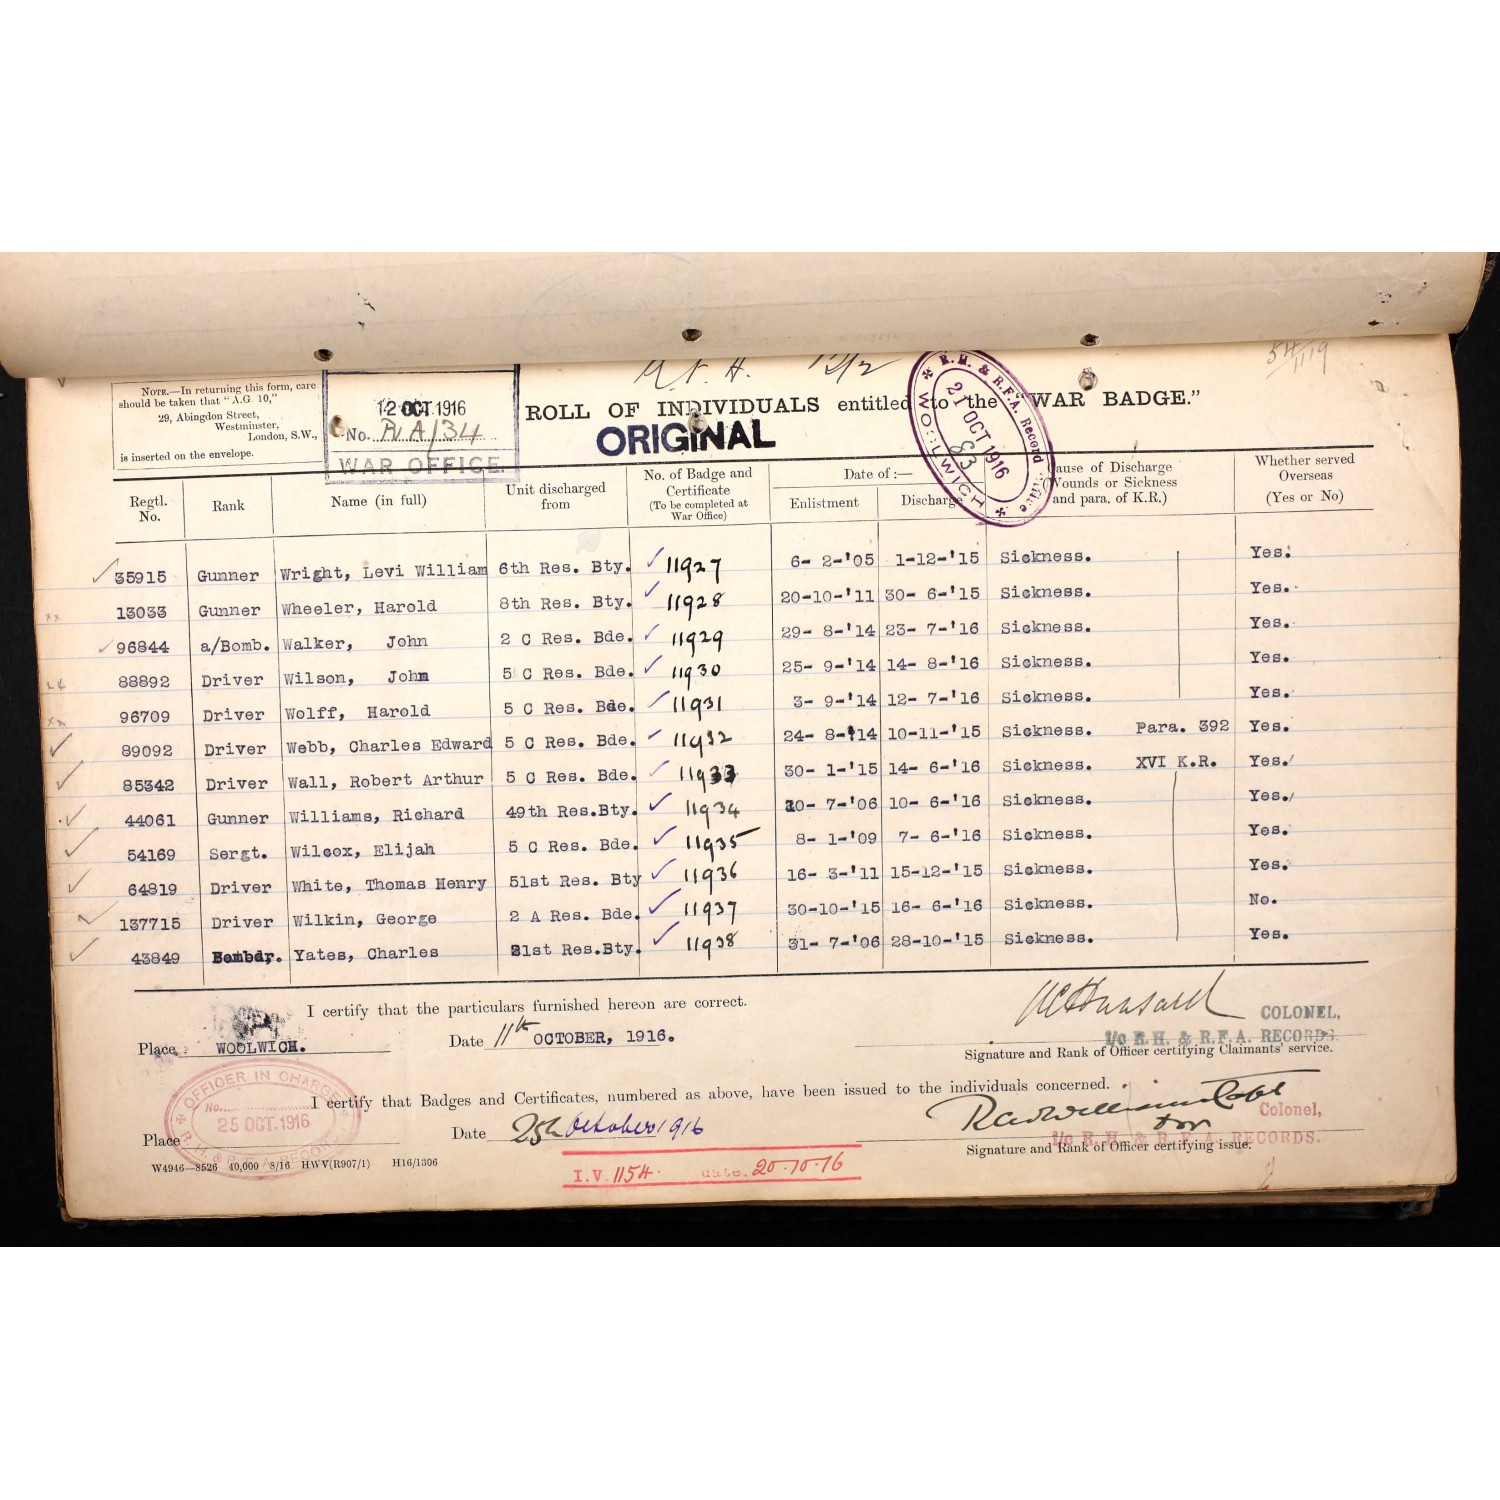 54/1119
12/2
NOTE.—In returning this form, care
should be taken that "A.G. 10,"
29, Abingdon Street,
Westminster,
London, S.W.,
is inserted on the envelope.
12 OCT 1916
No. R/A/34
WAR OFFICE.
ROLL OF INDIVIDUALS entitled to the "WAR BADGE."
ORIGINAL
R.H. & R.F.A. Record Office
21 OCT 1916
83
WOOLWICH
Regtl. No. Rank Name (in full) Unit discharged from No. of Badge and Certificate (To be completed at War Office) Date of :— Enlistment Discharge Cause of Discharge (Wounds or Sickness and para. of K.R.) Whether served Overseas (Yes or No)
35915 Gunner Wright, Levi William 6th Res. Bty. 11927 6- 2-'05 1-12-'15 Sickness. Yes.
13033 Gunner Wheeler, Harold 8th Res. Bty. 11928 20-10-'11 30- 6-'15 Sickness. Yes.
96844 a/Bomb. Walker, John 2 C Res. Bde. 11929 29- 8-'14 23- 7-'16 Sickness. Yes.
88892 Driver Wilson, John 5 C Res. Bde. 11930 25- 9-'14 14- 8-'16 Sickness. Yes.
96709 Driver Wolff, Harold 5 C Res. Bde. 11931 3- 9-'14 12- 7-'16 Sickness. Yes.
89092 Driver Webb, Charles Edward 5 C Res. Bde. 11932 24- 8-'14 10-11-'15 Sickness. Para. 392 Yes.
85342 Driver Wall, Robert Arthur 5 C Res. Bde. 11933 30- 1-'15 14- 6-'16 Sickness. XVI K.R. Yes.
44061 Gunner Williams, Richard 49th Res.Bty. 11934 20- 7-'06 10- 6-'16 Sickness. Yes.
54169 Sergt. Wilcox, Elijah 5 C Res. Bde. 11935 8- 1-'09 7- 6-'16 Sickness. Yes.
64819 Driver White, Thomas Henry 51st Res. Bty 11936 16- 3-'11 15-12-'15 Sickness. Yes.
137715 Driver Wilkin, George 2 A Res. Bde. 11937 30-10-'15 16- 6-'16 Sickness. No.
43849 Bombdr. Yates, Charles 31st Res.Bty. 11938 31- 7-'06 28-10-'15 Sickness. Yes.
I certify that the particulars furnished hereon are correct.
COLONEL,
Place WOOLWICH. Date 11th OCTOBER, 1916. I/c R.H. & R.F.A. RECORDS.
Signature and Rank of Officer certifying Claimants' service.
I certify that Badges and Certificates, numbered as above, have been issued to the individuals concerned.
OFFICER IN CHARGE
No.
25 OCT. 1916
R.H. & R.F.A. RECORDS
Colonel,
for
Place Date 25th October 1916 I/c R.H. & R.F.A. RECORDS.
Signature and Rank of Officer certifying issue.
W4946—8526 40,000 8/16 HWV(R907/1) H16/1306
I.V. 1154. date. 20.10.16